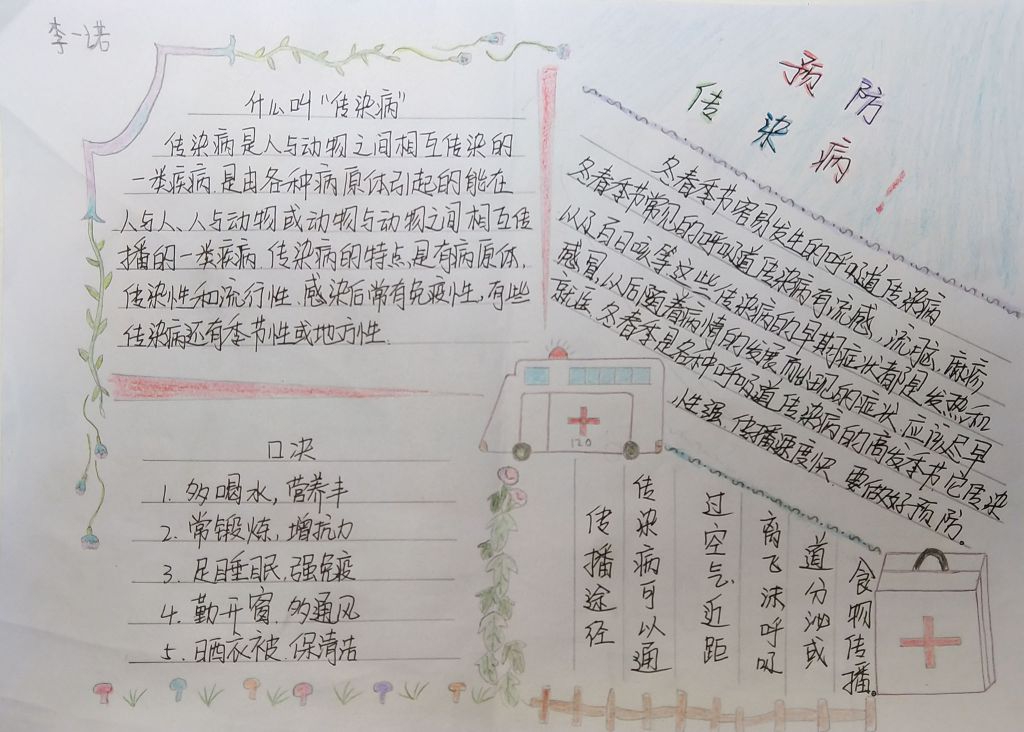 李一诺
什么叫"传染病"
传染病是人与动物之间相互传染的
一类疾病.是由各种病原体引起的能在
人与人、人与动物或动物与动物之间相互传
播的一类疾病.传染病的特点是有病原体,
传染性和流行性.感染后常有免疫性,有些
传染病还有季节性或地方性.
口决
1. 多喝水,营养丰
2. 常锻炼,增抗力
3. 足睡眠.强免疫
4. 勤开窗.多通风
5. 晒衣被.保清洁
预防
传染病!
冬春季节容易发生的呼吸道传染病
冬春季节常见的呼吸道传染病有流感,流脑,麻疹,
以及百日咳等这些传染病的早期症状都是发热和
感冒,以后随着病情的发展而出现的症状.应该尽早
就医.冬春季是各种呼吸道传染病的高发季节它传染
性强.传播速度快.要做好预防。
传播途径
传染病可以通
过空气.近距
离飞沫呼吸
道分泌或
食物传播。
120